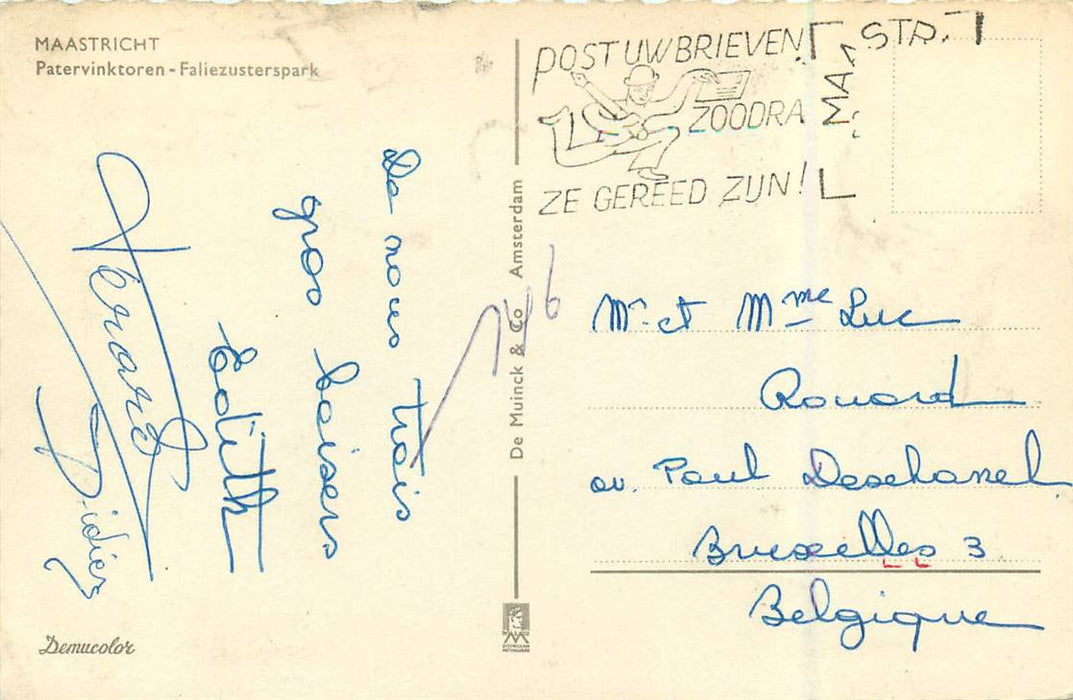 MAASTRICHT
Patervinktoren - Faliezusterspark
POST UW BRIEVEN
ZOODRA
ZE GEREED ZIJN!
MAASTR.
De nous trois
gros baisers
Edith
Gérard
Didier
De Muinck & Co Amsterdam
Mr et Mme Luc
Rouard
av. Paul Deschanel
Bruxelles 3
Belgique
Demucolor